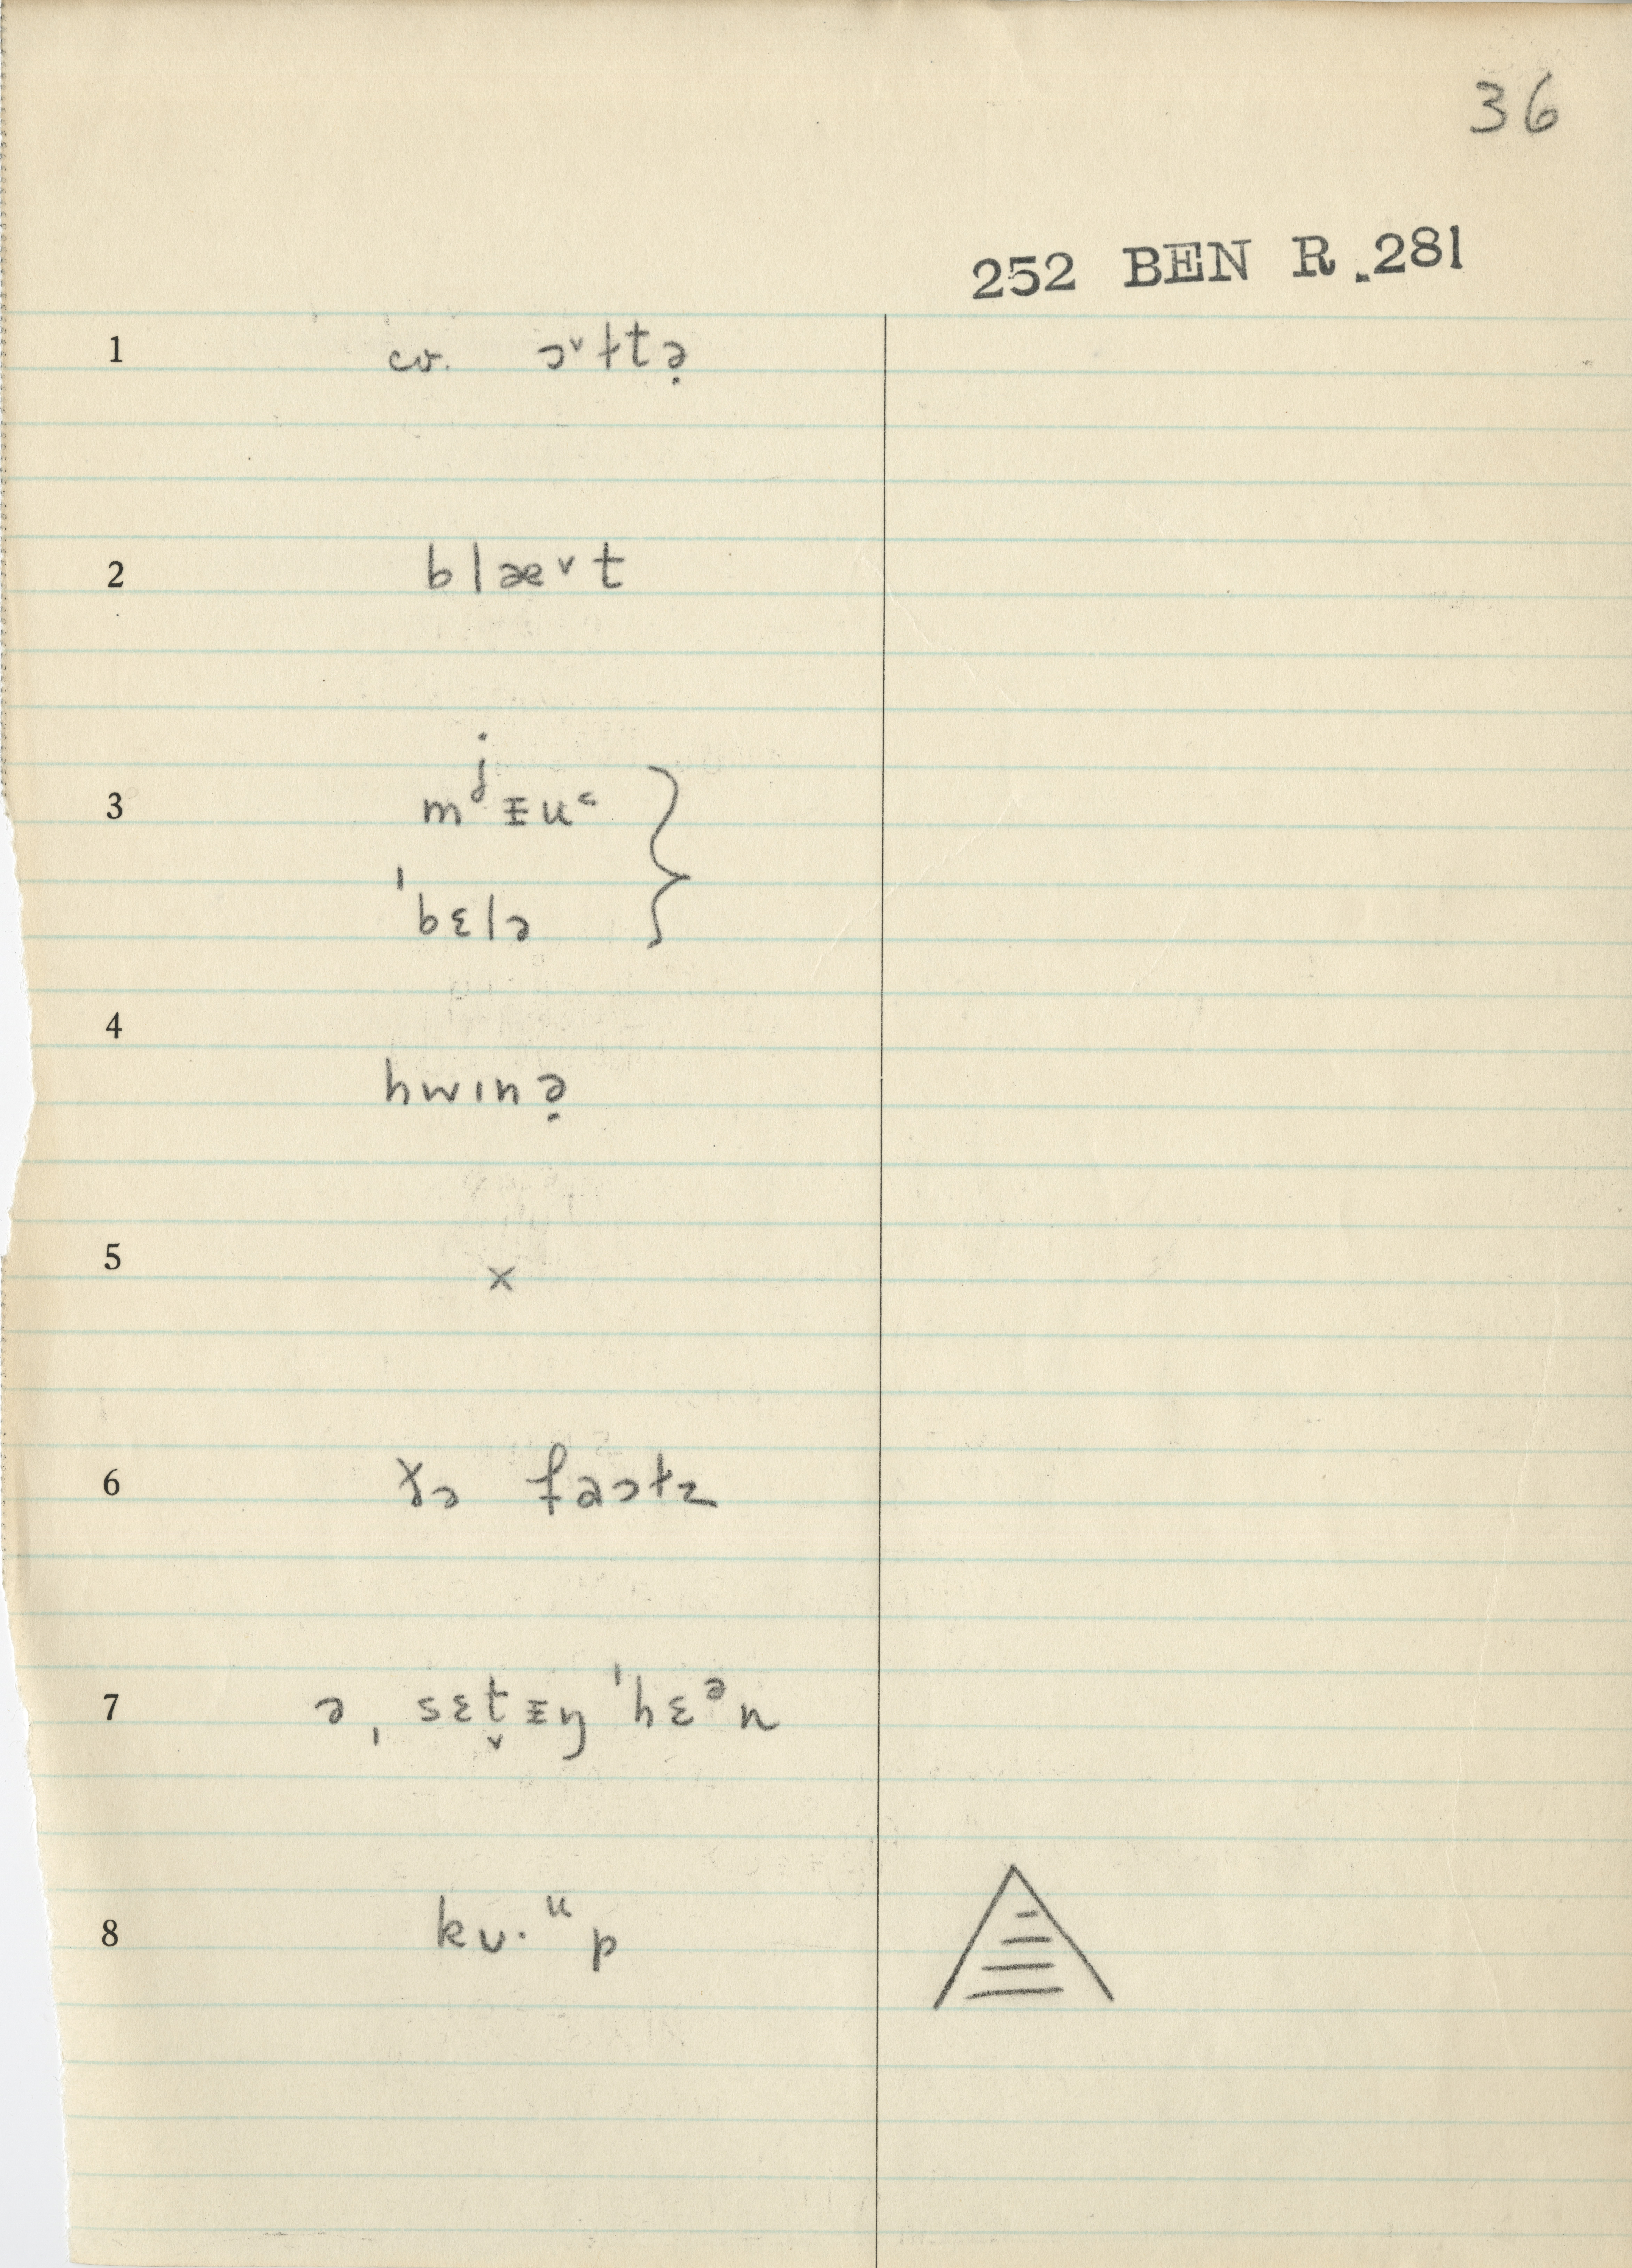 36
252 BEN R.281
1 cv. ɔ˅ɫtə̣
2 blæ˅t
3 mʲᵻu˂
ˈbɛlə
4 hwɪnə̣
5 x
6 ɤə faɔɫz
7 ə ˌsɛt̬ᵻŋ ˈhɛᵊn
8 kʋ·ᵘp